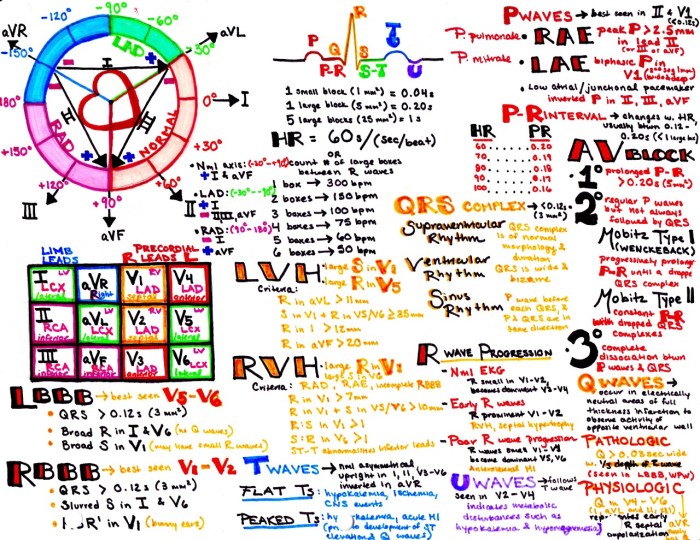 -90°
-120°
-60°
aVR
aVL
-150°
-30°
LAD
I
180°
0° → I
II
III
RAD
NORMAL
+150°
+30°
+120°
+60°
+90°
III
II
aVF
• Nml axis: (-30°-+90°)
+ I & aVF
• LAD: (-30°--90°)
+ I
- II, III, aVF
• RAD: (90°-180°)
- I
+ aVF
R
P
T
Q
S
P-R
S-T
U
1 small block (1 mm²) = 0.04s
1 large block (5 mm²) = 0.20s
5 large blocks (25mm²) = 1s
HR = 60s/(sec/beat)
OR
count # of large boxes
between R waves
1 box → 300 bpm
2 boxes → 150 bpm
3 boxes → 100 bpm
4 boxes → 75 bpm
5 boxes → 60 bpm
6 boxes → 50 bpm
P WAVES → best seen in II & V1
(<0.12s)
P. pulmonale • RAE peak P > 2.5mm
in lead II
(or III or aVF)
P. mitrale • LAE biphasic P in
V1
• Low atrial/junctional pacemaker
inverted P in II, III, aVF
P-R INTERVAL → changes w. HR,
usually btwn 0.12-
0.20s (<1 large box)
HR PR
60 ........ 0.20
70 ........ 0.19
80 ........ 0.18
90 ........ 0.17
100 ........ 0.16
AV BLOCK
• 1° prolonged P-R
> 0.20s (5mm²)
2° regular P waves
but not always
followed by QRS
Mobitz Type I
(WENCKEBACK)
progressively prolongs
P-R until a dropped
QRS complex
Mobitz Type II
constant P-R
with dropped QRS
complexes
• 3° complete
dissociation btwn
P waves & QRS
QRS COMPLEX → <0.12s
(3 mm²)
Supraventricular
Rhythm
QRS complex
is of normal
morphology &
duration
Ventricular
Rhythm
QRS is wide &
bizarre
Sinus
Rhythm
P wave before
each QRS, &
P & QRS are in
same direction
LIMB
LEADS
PRECORDIAL
LEADS
R L
I LV LCX lateral
aVR Right
V1 RV LAD septal
V4 LAD anterior
II RCA inferior
aVL LCX lateral
V2 RV LAD septal
V5 LV LCX lateral
III RCA inferior
aVF RCA inferior
V3 LAD anterior
V6 LV LCX lateral
LVH: large S in V1
large R in V5
Criteria:
R in aVL > 11mm
S in V1 + R in V5/V6 ≥ 35mm
R in I > 12mm
R in aVF > 20mm
RVH: large R in V1
Criteria: RAD, RAE, incomplete RBBB
R in V1 > 7mm
R in V1 + S in V5/V6 > 10mm
R:S in V1 > 1
S:R in V6 > 1
ST-T abnormalities inferior leads
R WAVE PROGRESSION
- Nml EKG
R small in V1-V2,
becomes dominant V3-V4
- Early R waves
R prominent V1-V2
RVH, septal hypertrophy
- Poor R wave progression
R waves small V1-V4
became dominant V5, V6
Anteroseptal MI
LBBB → best seen V5-V6
• QRS > 0.12s (3 mm²)
• Broad R in I & V6 (no Q waves)
• Broad S in V1 (may have small R waves)
RBBB → best seen V1-V2
• QRS > 0.12s (3 mm²)
• Slurred S in I & V6
• R' in V1 (bunny ears)
T WAVES → nml asymmetrical
upright in I, II, V3-V6
inverted in aVR
FLAT Ts: hypokalemia, ischemia,
CNS events
PEAKED Ts: acute MI
to development of ST
elevation & Q waves)
U WAVES → follows
T wave
seen in V2-V4
indicates metabolic
disturbances such as
hypokalemia & hypomagnesemia
Q WAVES →
occur in electrically
neutral areas of full
thickness infarction to
observe activity of
opposite ventricular wall
PATHOLOGIC
Q > 0.03sec wide
w. 1/3 depth of R wave
(seen in LBBB, WPW)
PHYSIOLOGIC
Q in V4-V6
(I, aVL and II, III)
early
R septal